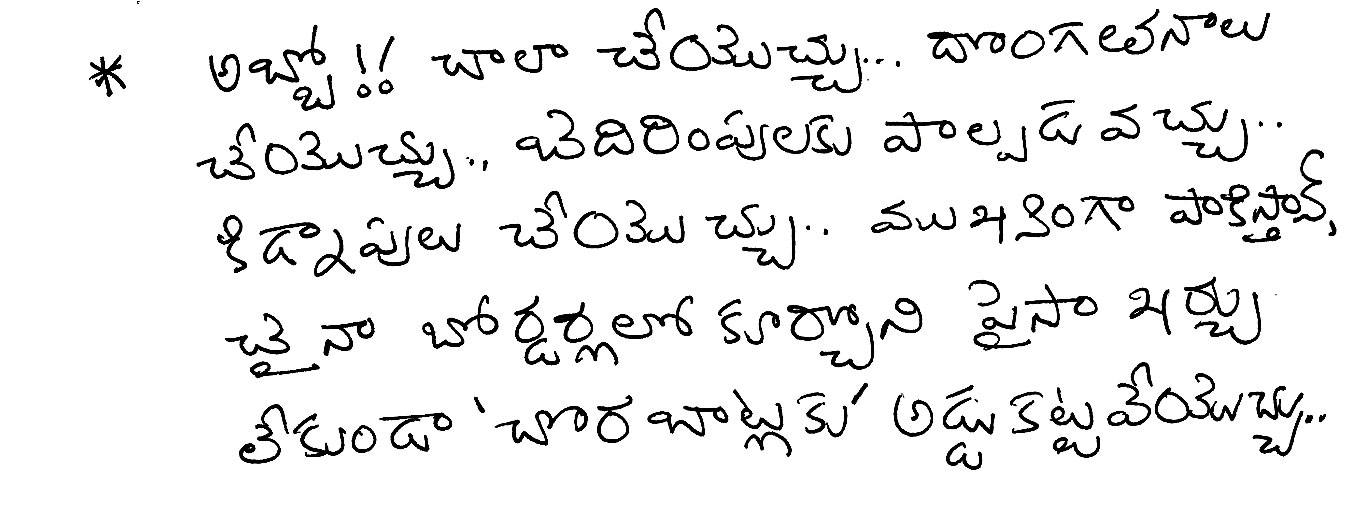 * అబ్బో!! చాలా చేయొచ్చు... దొంగలతనాలు
చేయొచ్చు.., బెదిరింపులకు పాల్పడ వచ్చు..
కిడ్నాపులు చేయొచ్చు.. ముఖ్యంగా పాకిస్తాన్,
చైనా బోర్డర్లలో కూర్చొని పైసా ఖర్చు
లేకుండా 'చొరబాట్లకు' అడ్డుకట్ట వేయొచ్చు..